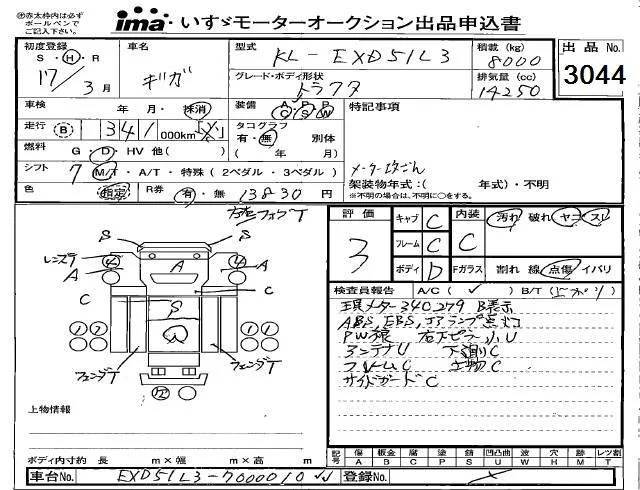 ㊟赤太枠内は必ず
ボールペンで
ご記入下さい。
ima いすゞモーターオークション出品申込書
初度登録 車名 型式 KL-EXD51L3 積載 (kg) 8000 出品 No.
S・H・R
17/3月 ギガ グレード・ボディ形状 トラクタ 排気量 (cc) 14250 3044
車検 年 月・抹消 装備 A・P・P C・S・W 特記事項
走行 B 341 000km タコグラフ 有・無 別体
燃料 G・D・HV 他( ) ( 年 月)
シフト 7 M/T・A/T・特殊 (2ペダル・3ペダル) 架装物年式:( 年式)・不明
色 R券 有・無 13830 円 ※不明の場合は、不明に○をする。
評価 3 キャブ C 内装 C 汚れ 破れ ヤコ スレ
フレーム C
ボディ D Fガラス 割れ 線 点傷 イバリ
検査員報告 A/C( ✓ ) B/T( )
メーター340279 B表示
ABS, EBS, エアランプ点灯
アンテナU 下廻りC
フレームC
サイドガードC
S S
A A A
C
S
フェンダT フェンダT
上物情報
ボディ内寸約 長 m×幅 m×高 m
記号 傷 板金 腐 塗 錆 凹凸曲 波 穴 跡 レツ割
A B C P S U W H M T
車台No. EXD51L3-7000010 登録No.